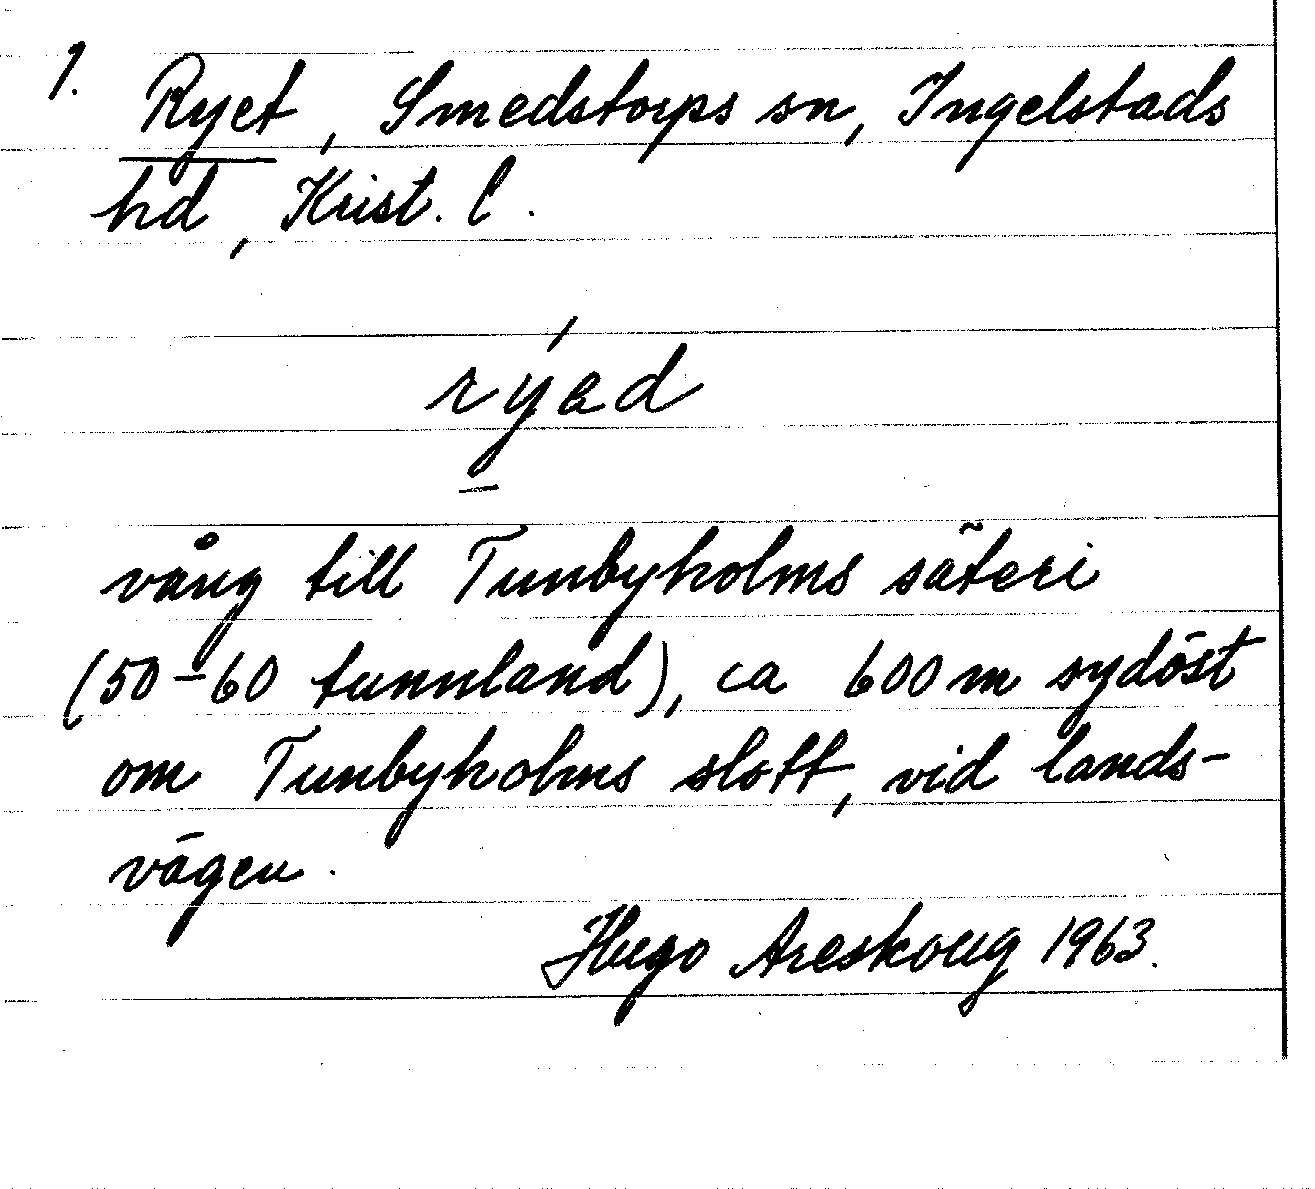 1. Ryet, Smedstorps sn, Ingelstads
hd, Krist. l.
rýad
vång till Tunbyholms säteri
(50–60 tunnland), ca 600 m sydöst
om Tunbyholms slott, vid lands-
vägen.
Hugo Areskoug 1963.